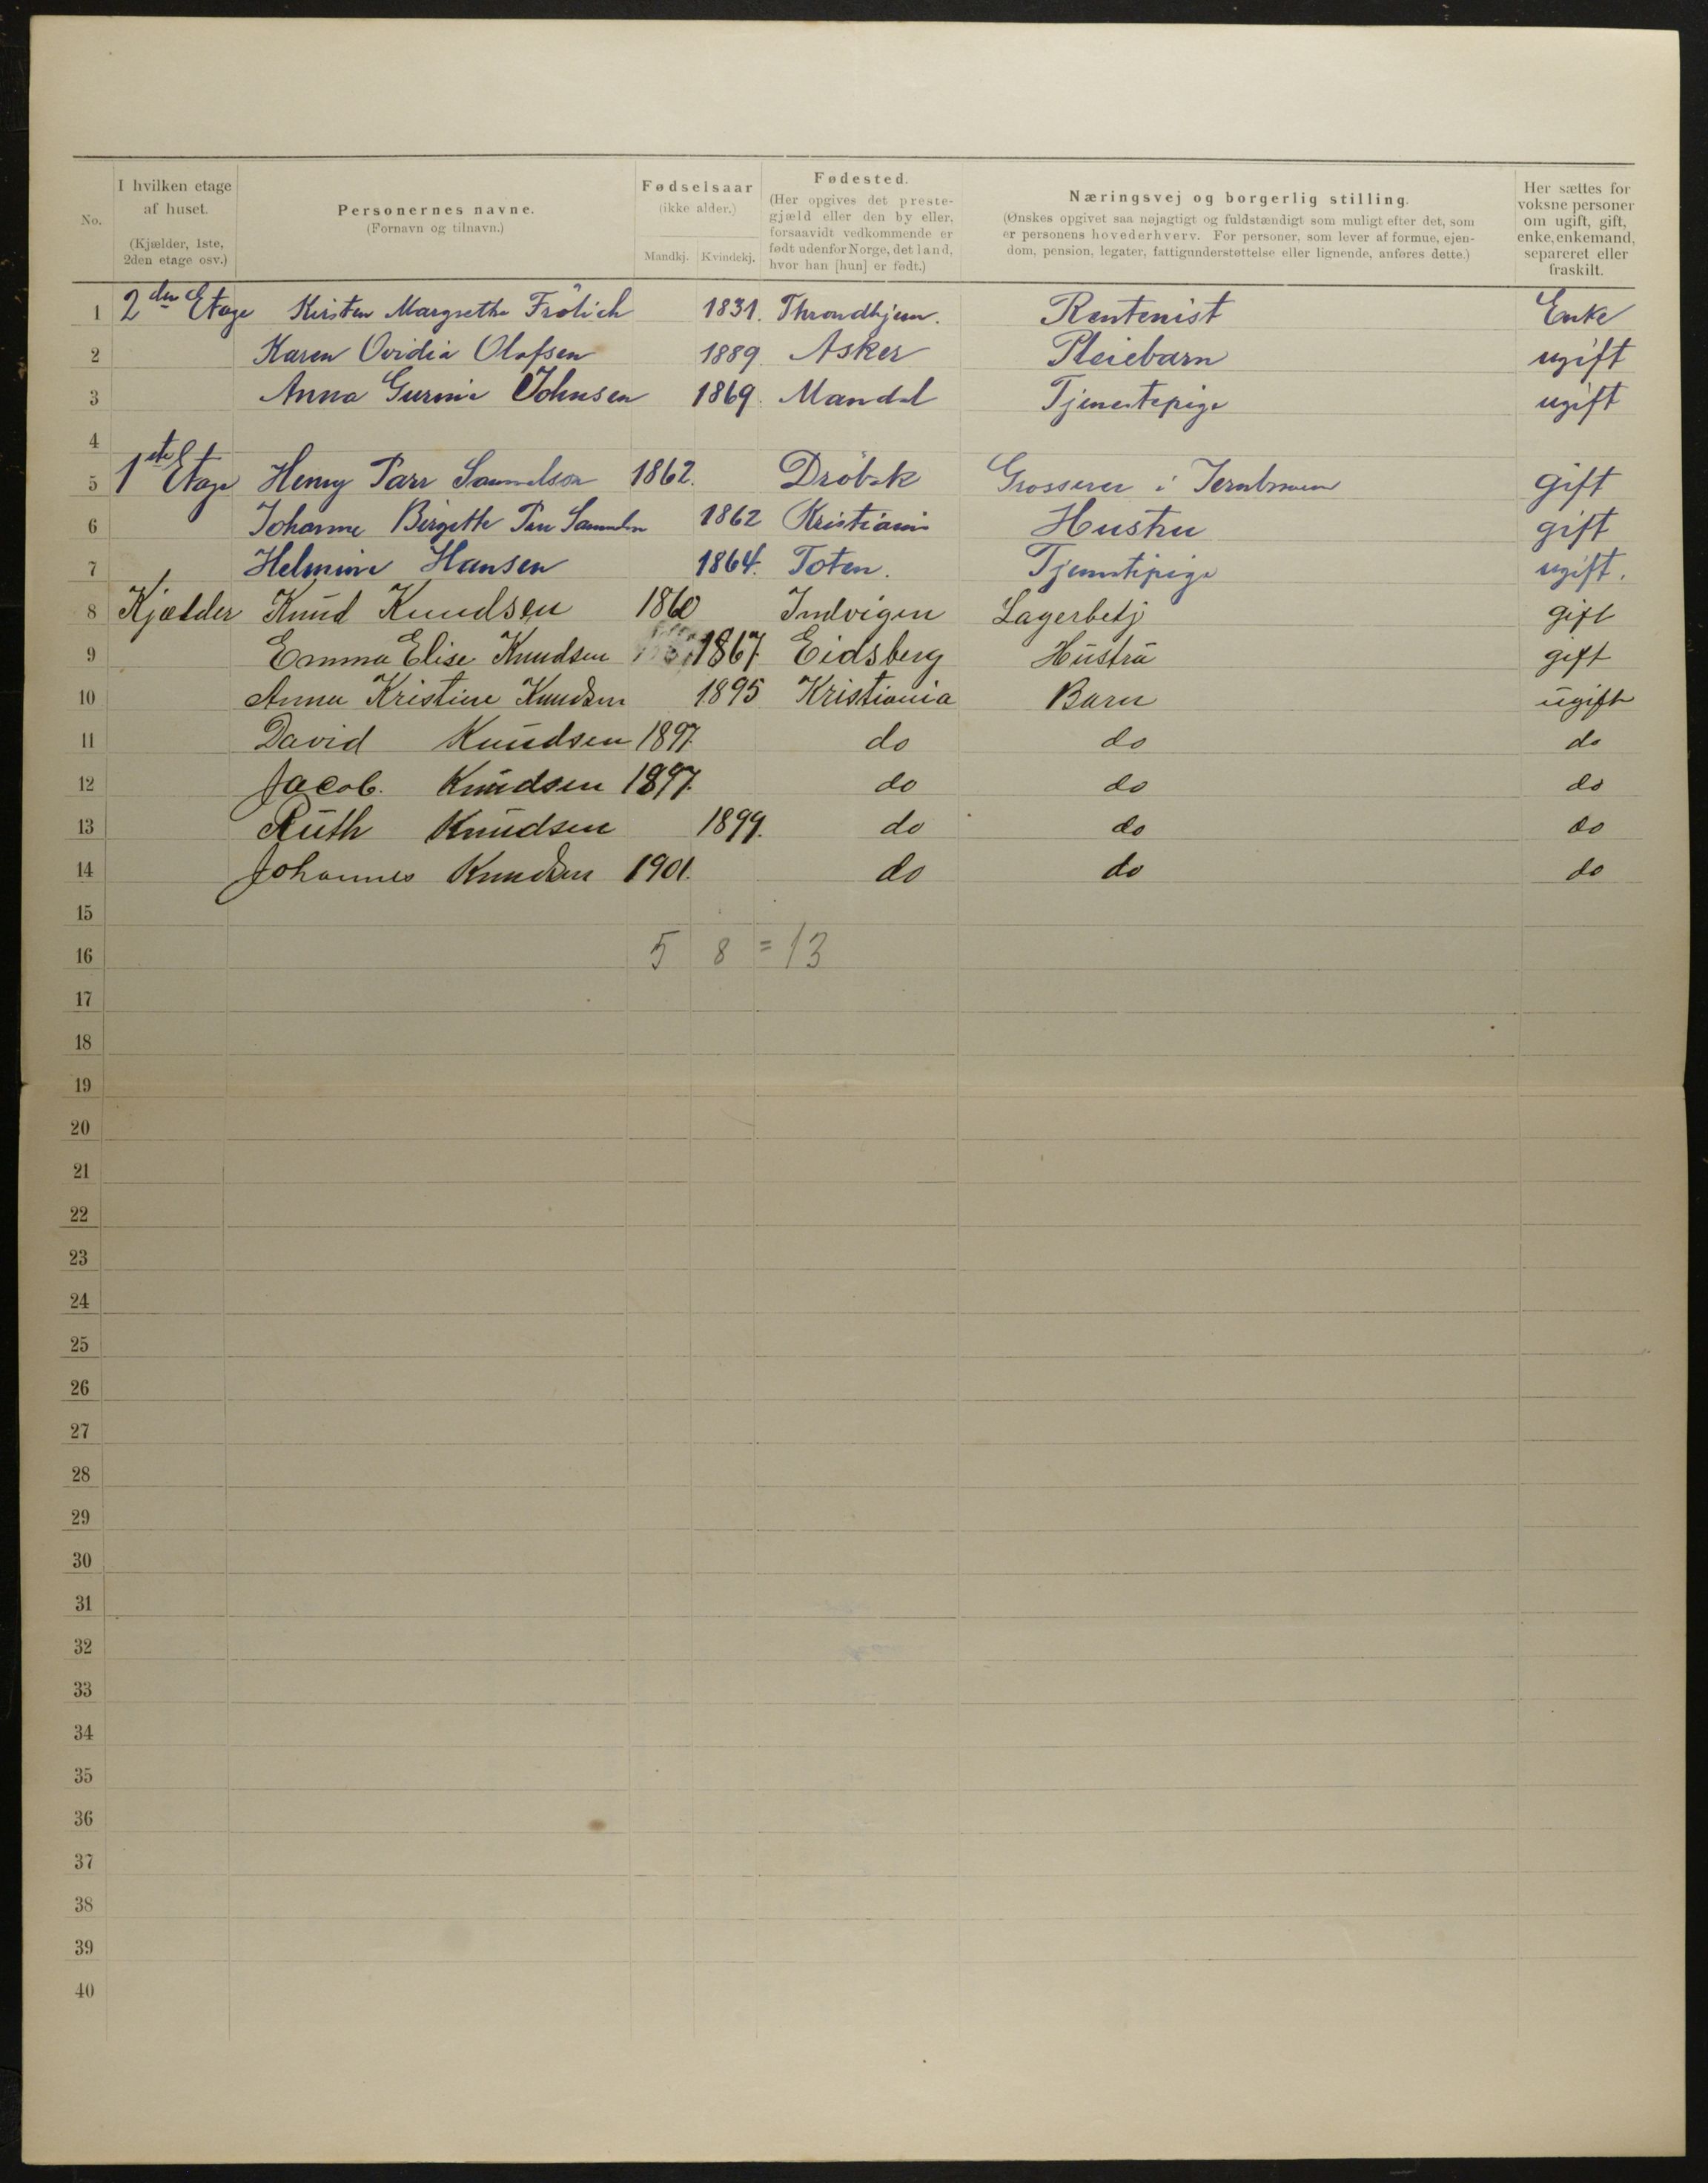 No. | I hvilken etage af huset. (Kjælder, 1ste, 2den etage osv.) | Personernes navne. (Fornavn og tilnavn.) | Fødselsaar (ikke alder.) Mandkj. Kvindekj. | Fødested. (Her opgives det prestegjæld eller den by eller, forsaavidt vedkommende er født udenfor Norge, det land, hvor han [hun] er født.) | Næringsvej og borgerlig stilling. (Ønskes opgivet saa nøjagtigt og fuldstændigt som muligt efter det, som er personens hovederhverv. For personer, som lever af formue, ejendom, pension, legater, fattigunderstøttelse eller lignende, anføres dette.) | Her sættes for voksne personer om ugift, gift, enke, enkemand, separeret eller fraskilt.
1 2den Etage Kirsten Margrethe Frölich 1831. Throndhjem. Rentenist Enke
2 Karen Ovidia Olafsen 1889 Asker Pleiebarn ugift
3 Anna Gurine Johnsen 1869. Mandal Tjenestepige ugift
4
5 1ste Etage Henry Parr Samuelson 1862. Dröbak Grosserer i gift
6 Johanne Birgitte Parr Samuelson 1862 Kristiania Hustru gift
7 Helmine Hansen 1864. Toten. Tjenestepige ugift.
8 Kjælder Knud Knudsen 1860 Indvigen Lagerbetj gift
9 Emma Elise Knudsen 1867. Eidsberg Hustru gift
10 Anna Kristine Knudsen 1895 Kristiania Barn ugift
11 David Knudsen 1897. do do do
12 Jacob. Knudsen 1897. do do do
13 Ruth Knudsen 1899. do do do
14 Johannes Knudsen 1901. do do do
15
16 5 8 = 13
17
18
19
20
21
22
23
24
25
26
27
28
29
30
31
32
33
34
35
36
37
38
39
40